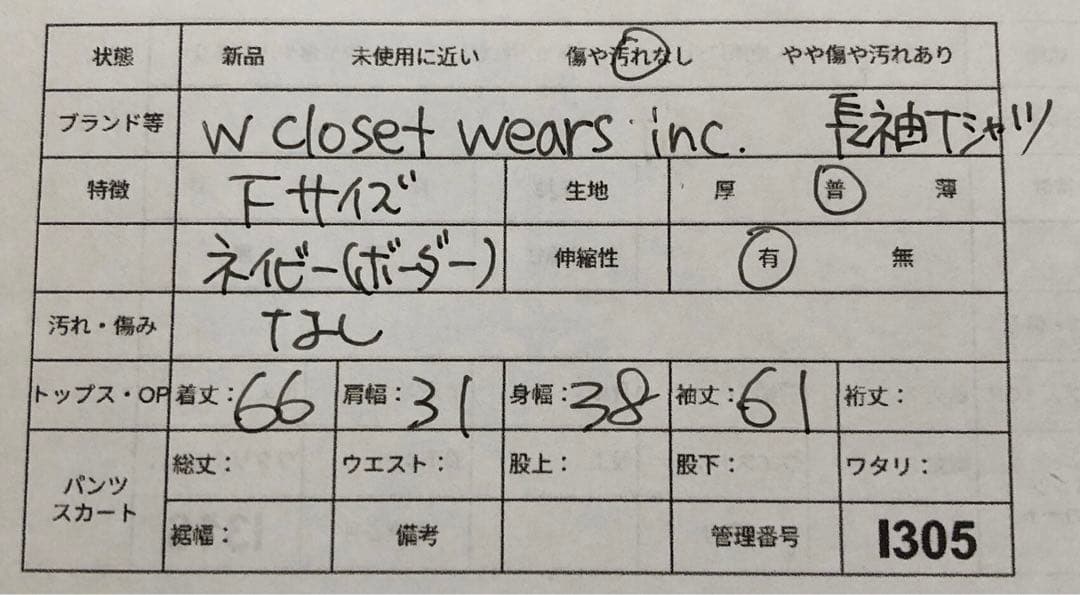 状態 新品 未使用に近い 傷や汚れなし やや傷や汚れあり
ブランド等 w closet wears inc. 長袖Tシャツ
特徴 Fサイズ 生地 厚 普 薄
ネイビー(ボーダー) 伸縮性 有 無
汚れ・傷み なし
トップス・OP 着丈：66 肩幅：31 身幅：38 袖丈：61 裄丈：
パンツ スカート 総丈： ウエスト： 股上： 股下： ワタリ：
裾幅： 備考 管理番号 I305